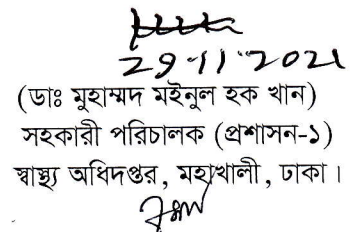 29-11-2021
(ডাঃ মুহাম্মদ মইনুল হক খান)
সহকারী পরিচালক (প্রশাসন-১)
স্বাস্থ্য অধিদপ্তর, মহাখালী, ঢাকা।